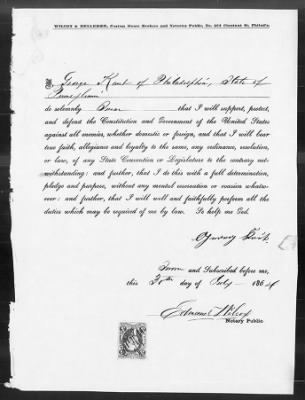 WILCOX & HULLINGER, Custom House Brokers and Notaries Public, No. 404 Chestnut St. Philad'a.
I, George Kant of Philadelphia, State of
Pennsylvania
do solemnly Swear that I will support, protect,
and defend the Constitution and Government of the United States
against all enemies, whether domestic or foreign, and that I will bear
true faith, allegiance and loyalty to the same, any ordinance, resolution,
or law, of any State Convention or Legislature to the contrary not-
withstanding: and further, that I do this with a full determination,
pledge and purpose, without any mental reservation or evasion whatso-
ever: and further, that I will well and faithfully perform all the
duties which may be required of me by law. So help me God.
Sworn and Subscribed before me,
this 30th day of July 1864
Edmund Wilcox
Notary Public